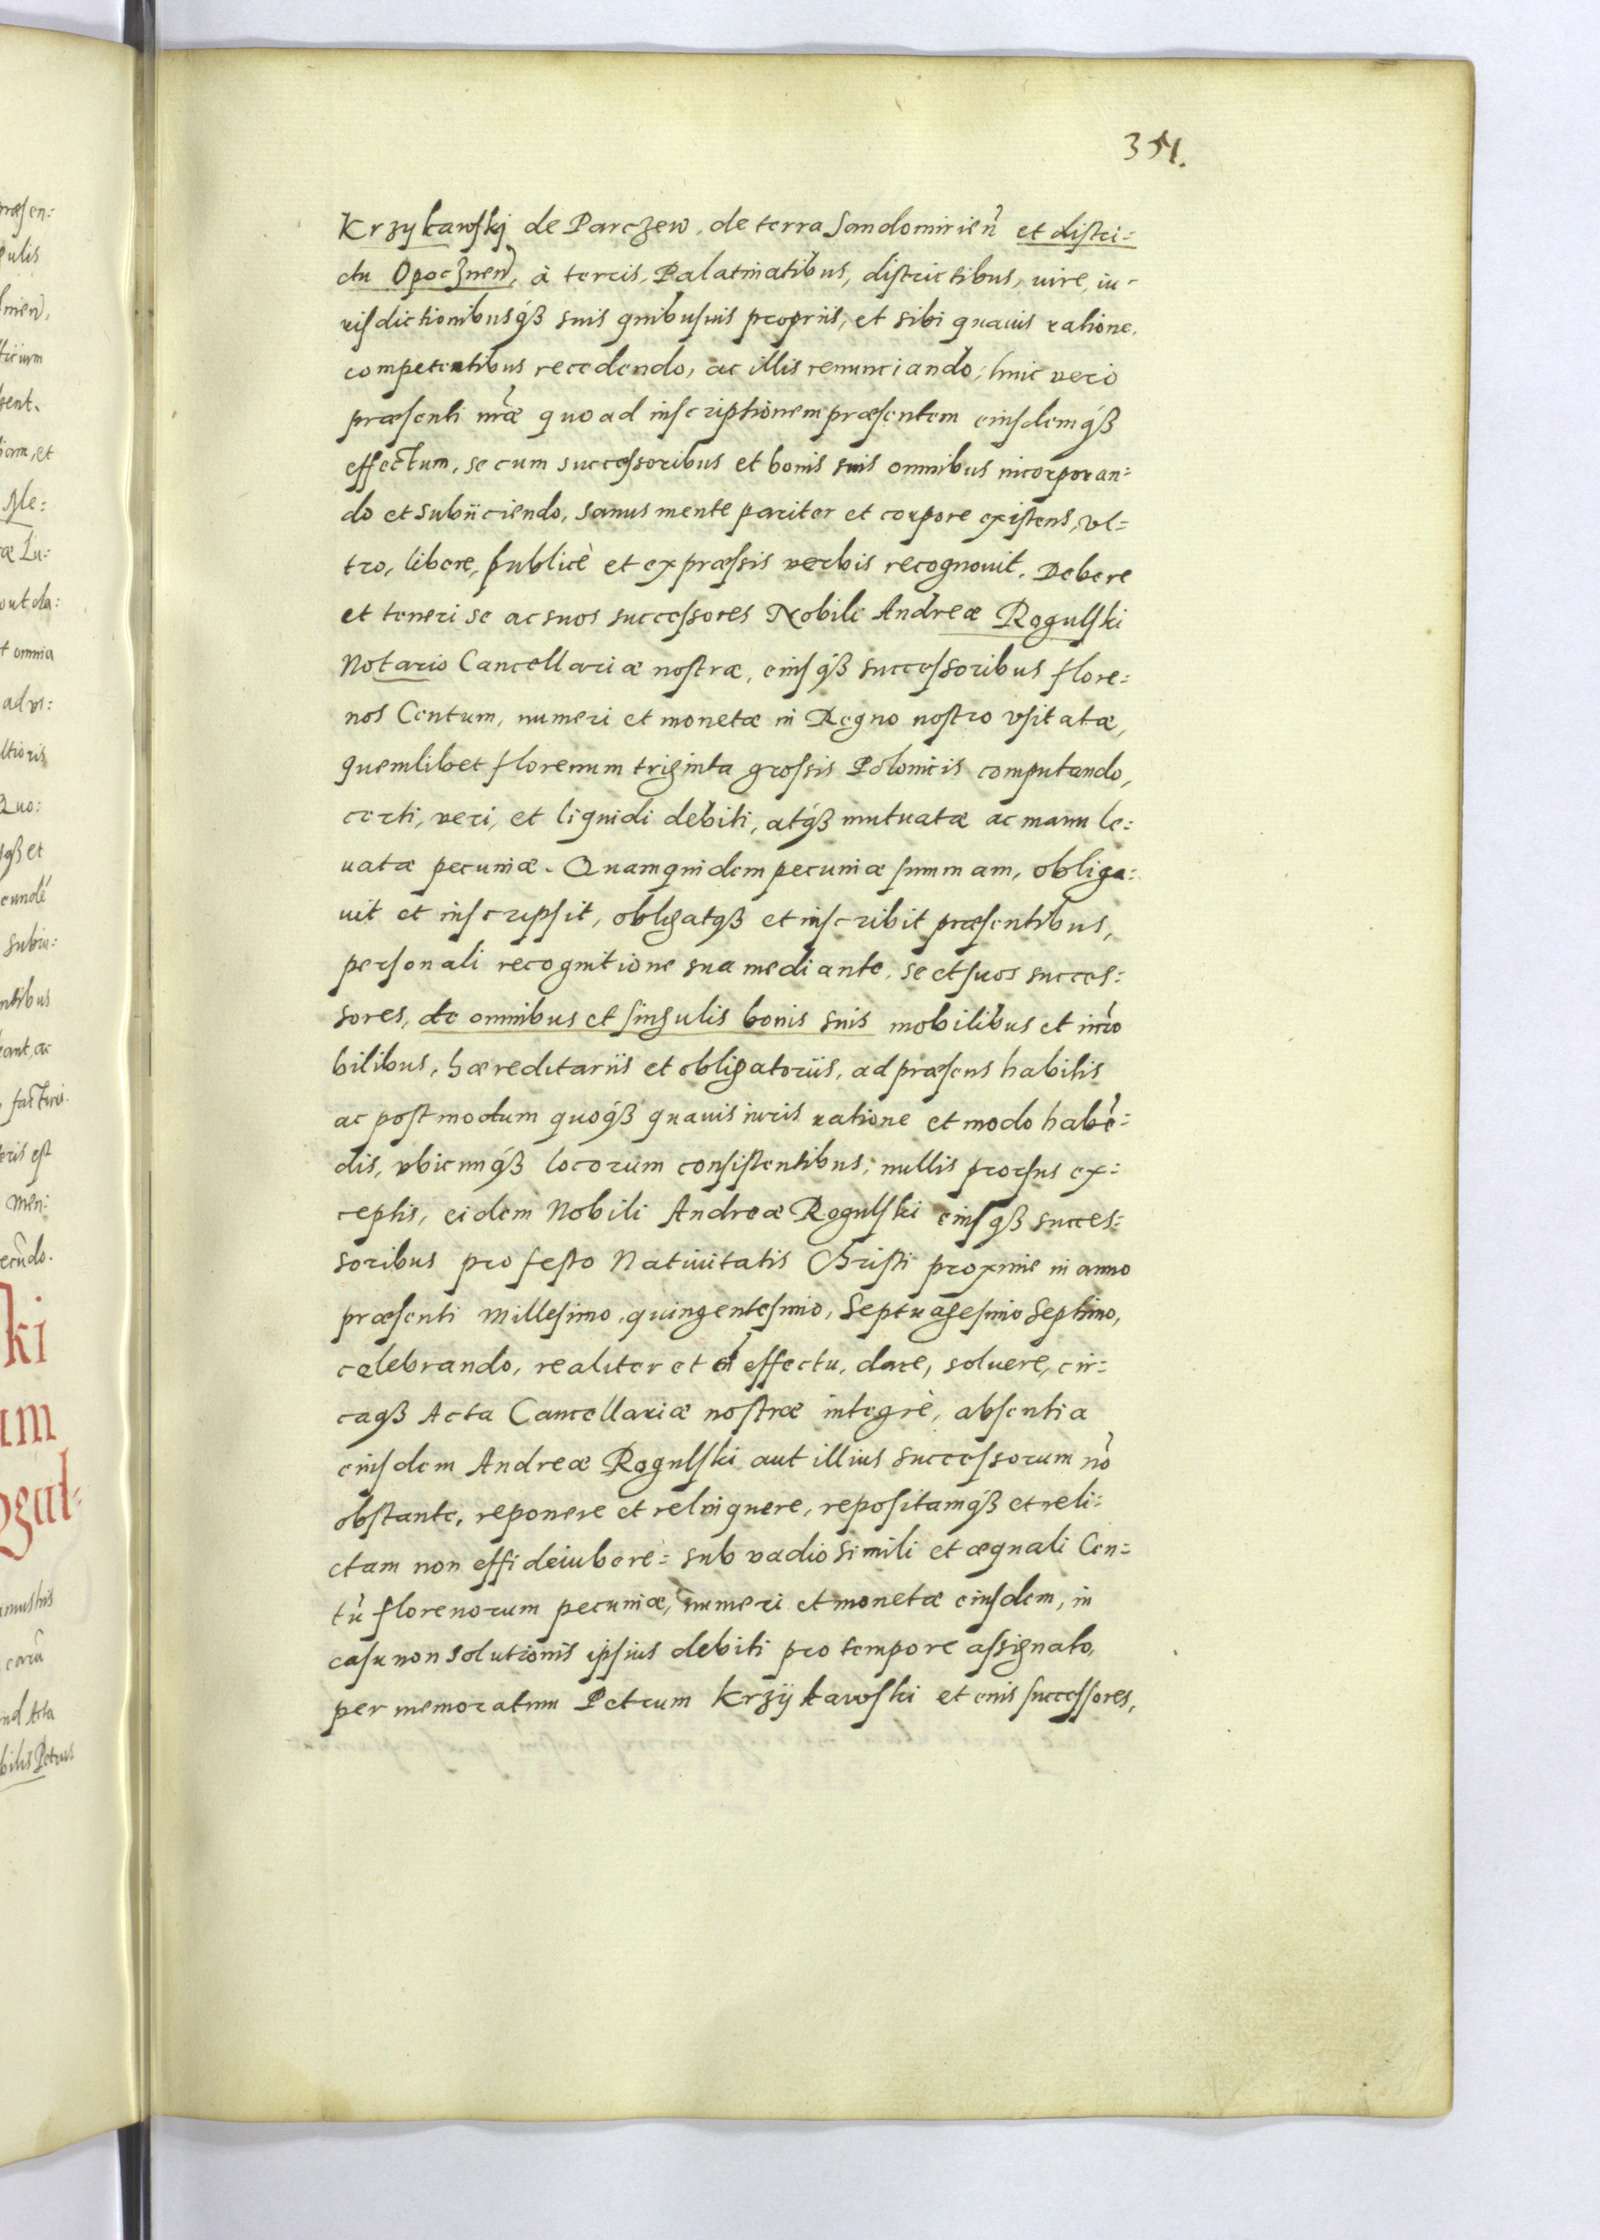 351.
Krzykawskj de Parczew, de terra Sandomirieñ et distri:
ctu Opocznen, à terris, Palatinatibus, districtibus, iure, iu-
risdictionibusq́ꝫ suis quibusuis proprijs, et sibi quauis ratione,
competentibus recedendo, ac illis renunciando; huic vero
præsenti nr̃æ quo ad inscriptionem præsentem eiusdemq́ꝫ
effectum, se cum successoribus et bonis suis omnibus incorporan:
do et subijciendo, sanus mente pariter et corpore existens, vl:
tro, libere, publicè et expræssis verbis recognouit. Debere
et teneri se ac suos successores Nobili Andreæ Rogulski
Notario Cancellariæ nostræ, eiusq́ꝫ successoribus flore:
nos Centum, numeri et monetæ in Regno nostro vsitatæ,
quemlibet florenum triginta grossis Polonicis computando,
certi, veri, et liquidi debiti, atq́ꝫ mutuatæ ac manu le:
uatæ pecuniæ. Quamquidem pecuniæ summam, obliga:
uit et inscripsit, obligatqꝫ et inscribit præsentibus,
personali recognitione sua mediante, se et suos succes:
sores, de omnibus et singulis bonis suis mobilibus et im̃o
bilibus, hæreditarijs et obligatorijs, ad præsens habitis
ac postmodum quoq́ꝫ quauis iuris ratione et modo habẽ:
dis, vbicunq́ꝫ locorum consistentibus, nullis prorsus ex:
ceptis, eidem Nobili Andreæ Rogulski eiusqꝫ succes:
soribus pro festo Natiuitatis Christi proxime in anno
præsenti Millesimo, quingentesimo, Septuagesimo Septimo,
celebrando, realiter et cũ effectu, dare, soluere, cir:
caqꝫ Acta Cancellariæ nostræ integrè, absentia
eiusdem Andreæ Rogulski aut illius successorum nõ
obstante, reponere et relinquere, repositamq́ꝫ et reli:
ctam non effideiubere: sub vadio simili et æquali Cen:
tũ florenorum pecuniæ, numeri et monetæ eiusdem, in
casu non solutionis ipsius debiti pro tempore assignato,
per memoratum Petrum Krzykawski et eius successores,